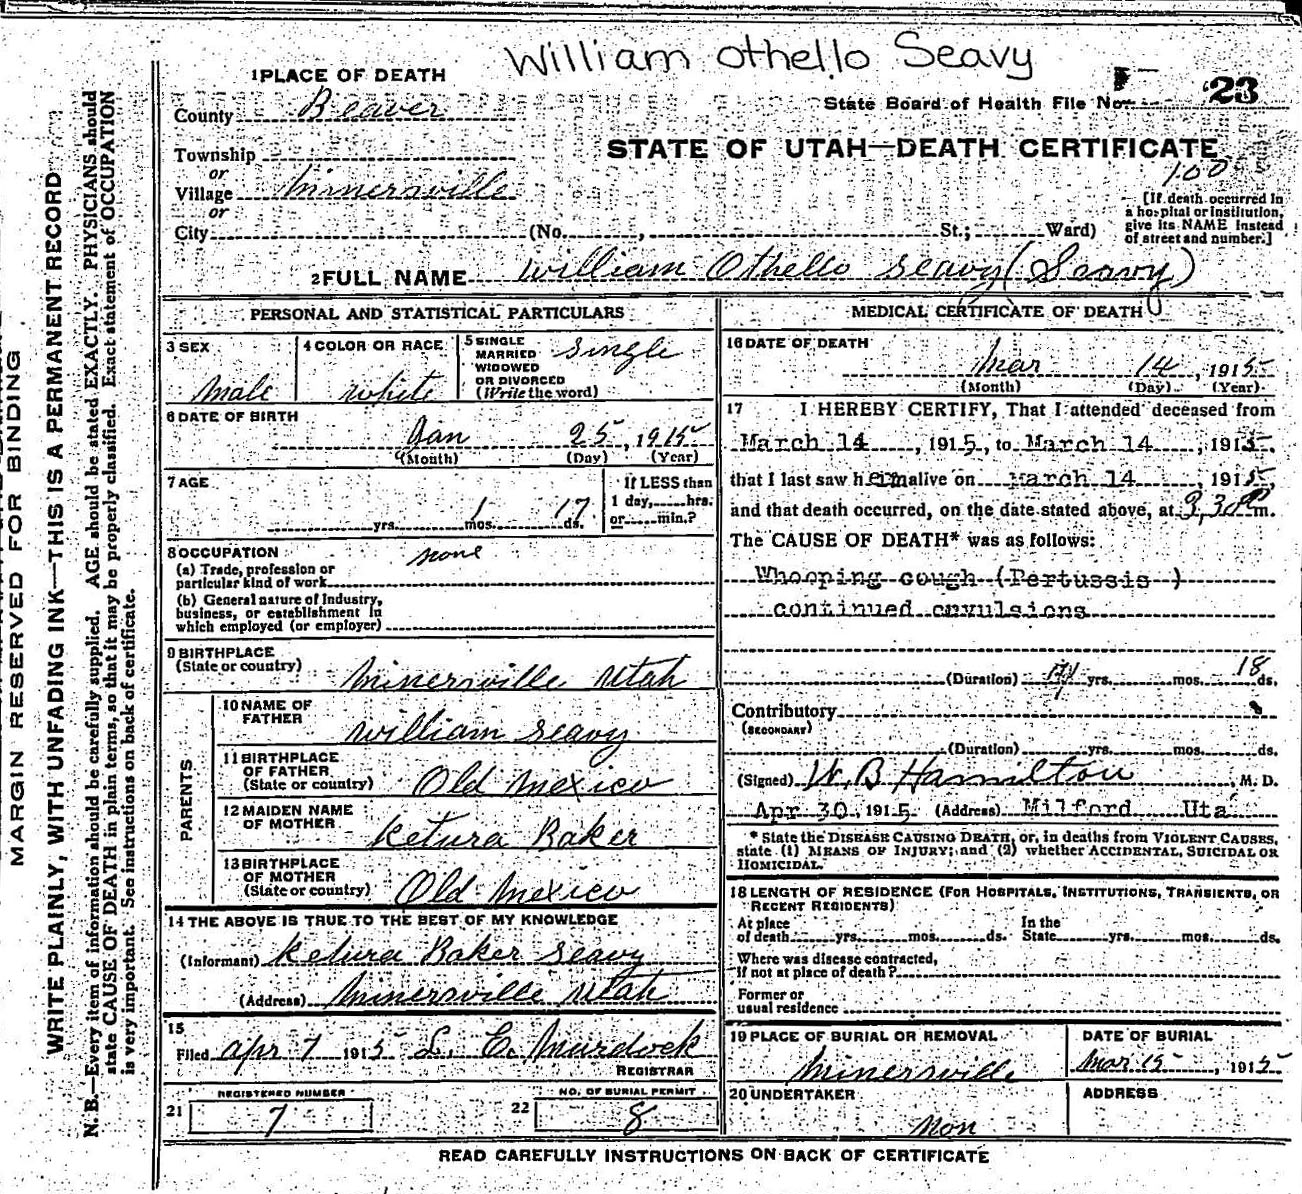 William Othello Seavy
1 PLACE OF DEATH
County Beaver
State Board of Health File No. 23
Township
or
Village Minersville
or
City (No. , St.; Ward)
STATE OF UTAH—DEATH CERTIFICATE
100
[If death occurred in
a hospital or institution,
give its NAME instead
of street and number.]
2 FULL NAME William Othello Seavy (Seavy)
PERSONAL AND STATISTICAL PARTICULARS
3 SEX
Male
4 COLOR OR RACE
White
5 SINGLE
MARRIED
WIDOWED
OR DIVORCED
(Write the word)
Single
6 DATE OF BIRTH
Jan 25, 1915
(Month) (Day) (Year)
7 AGE
yrs. 1 mos. 17 ds.
If LESS than
1 day, hrs.
or min.?
8 OCCUPATION
none
(a) Trade, profession or
particular kind of work
(b) General nature of Industry,
business, or establishment in
which employed (or employer)
9 BIRTHPLACE
(State or country) Minersville Utah
PARENTS
10 NAME OF
FATHER
William Seavy
11 BIRTHPLACE
OF FATHER
(State or country) Old Mexico
12 MAIDEN NAME
OF MOTHER
Ketura Baker
13 BIRTHPLACE
OF MOTHER
(State or country) Old Mexico
14 THE ABOVE IS TRUE TO THE BEST OF MY KNOWLEDGE
(Informant) Ketura Baker Seavy
(Address) Minersville Utah
15
Filed Apr 7 1915 L. E. Murdock
REGISTRAR
REGISTERED NUMBER
21 7
NO. OF BURIAL PERMIT
22 8
MEDICAL CERTIFICATE OF DEATH
16 DATE OF DEATH
Mar 14, 1915
(Month) (Day) (Year)
17 I HEREBY CERTIFY, That I attended deceased from
March 14, 1915, to March 14, 1915,
that I last saw him alive on March 14, 1915,
and that death occurred, on the date stated above, at 3,30 P m.
The CAUSE OF DEATH* was as follows:
Whooping cough (Pertussis )
continued cnvulsions
(Duration) yrs. mos. 18 ds.
Contributory
(SECONDARY)
(Duration) yrs. mos. ds.
(Signed) W. B Hamilton M. D.
Apr 30, 1915 (Address) Milford Uta
* State the DISEASE CAUSING DEATH, or, in deaths from VIOLENT CAUSES,
state (1) MEANS OF INJURY; and (2) whether ACCIDENTAL, SUICIDAL OR
HOMICIDAL.
18 LENGTH OF RESIDENCE (FOR HOSPITALS, INSTITUTIONS, TRANSIENTS, OR
RECENT RESIDENTS)
At place In the
of death yrs. mos. ds. State yrs. mos. ds.
Where was disease contracted,
if not at place of death?
Former or
usual residence
19 PLACE OF BURIAL OR REMOVAL
Minersville
DATE OF BURIAL
Mar 15, 1915
20 UNDERTAKER
Non
ADDRESS
READ CAREFULLY INSTRUCTIONS ON BACK OF CERTIFICATE
MARGIN RESERVED FOR BINDING
WRITE PLAINLY, WITH UNFADING INK—THIS IS A PERMANENT RECORD
N. B.—Every item of information should be carefully supplied. AGE should be stated EXACTLY. PHYSICIANS should
state CAUSE OF DEATH in plain terms, so that it may be properly classified. Exact statement of OCCUPATION
is very important. See instructions on back of certificate.